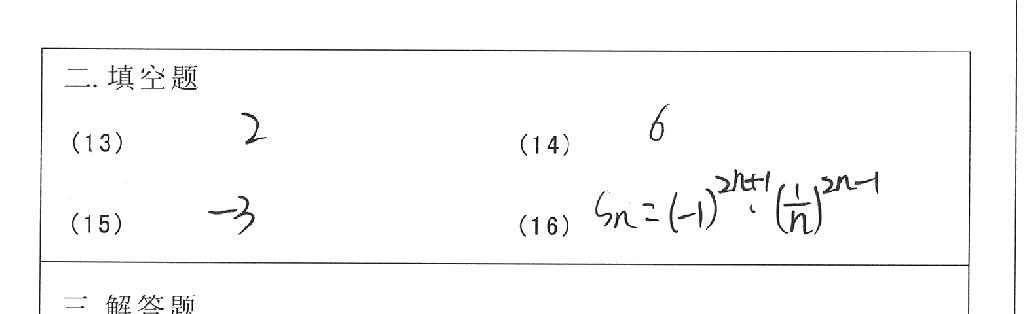 二.填空题
(13) 2 (14) 6
(15) -3 (16) Sn=(-1)^{2n+1}·(\frac{1}{n})^{2n-1}
三.解答题